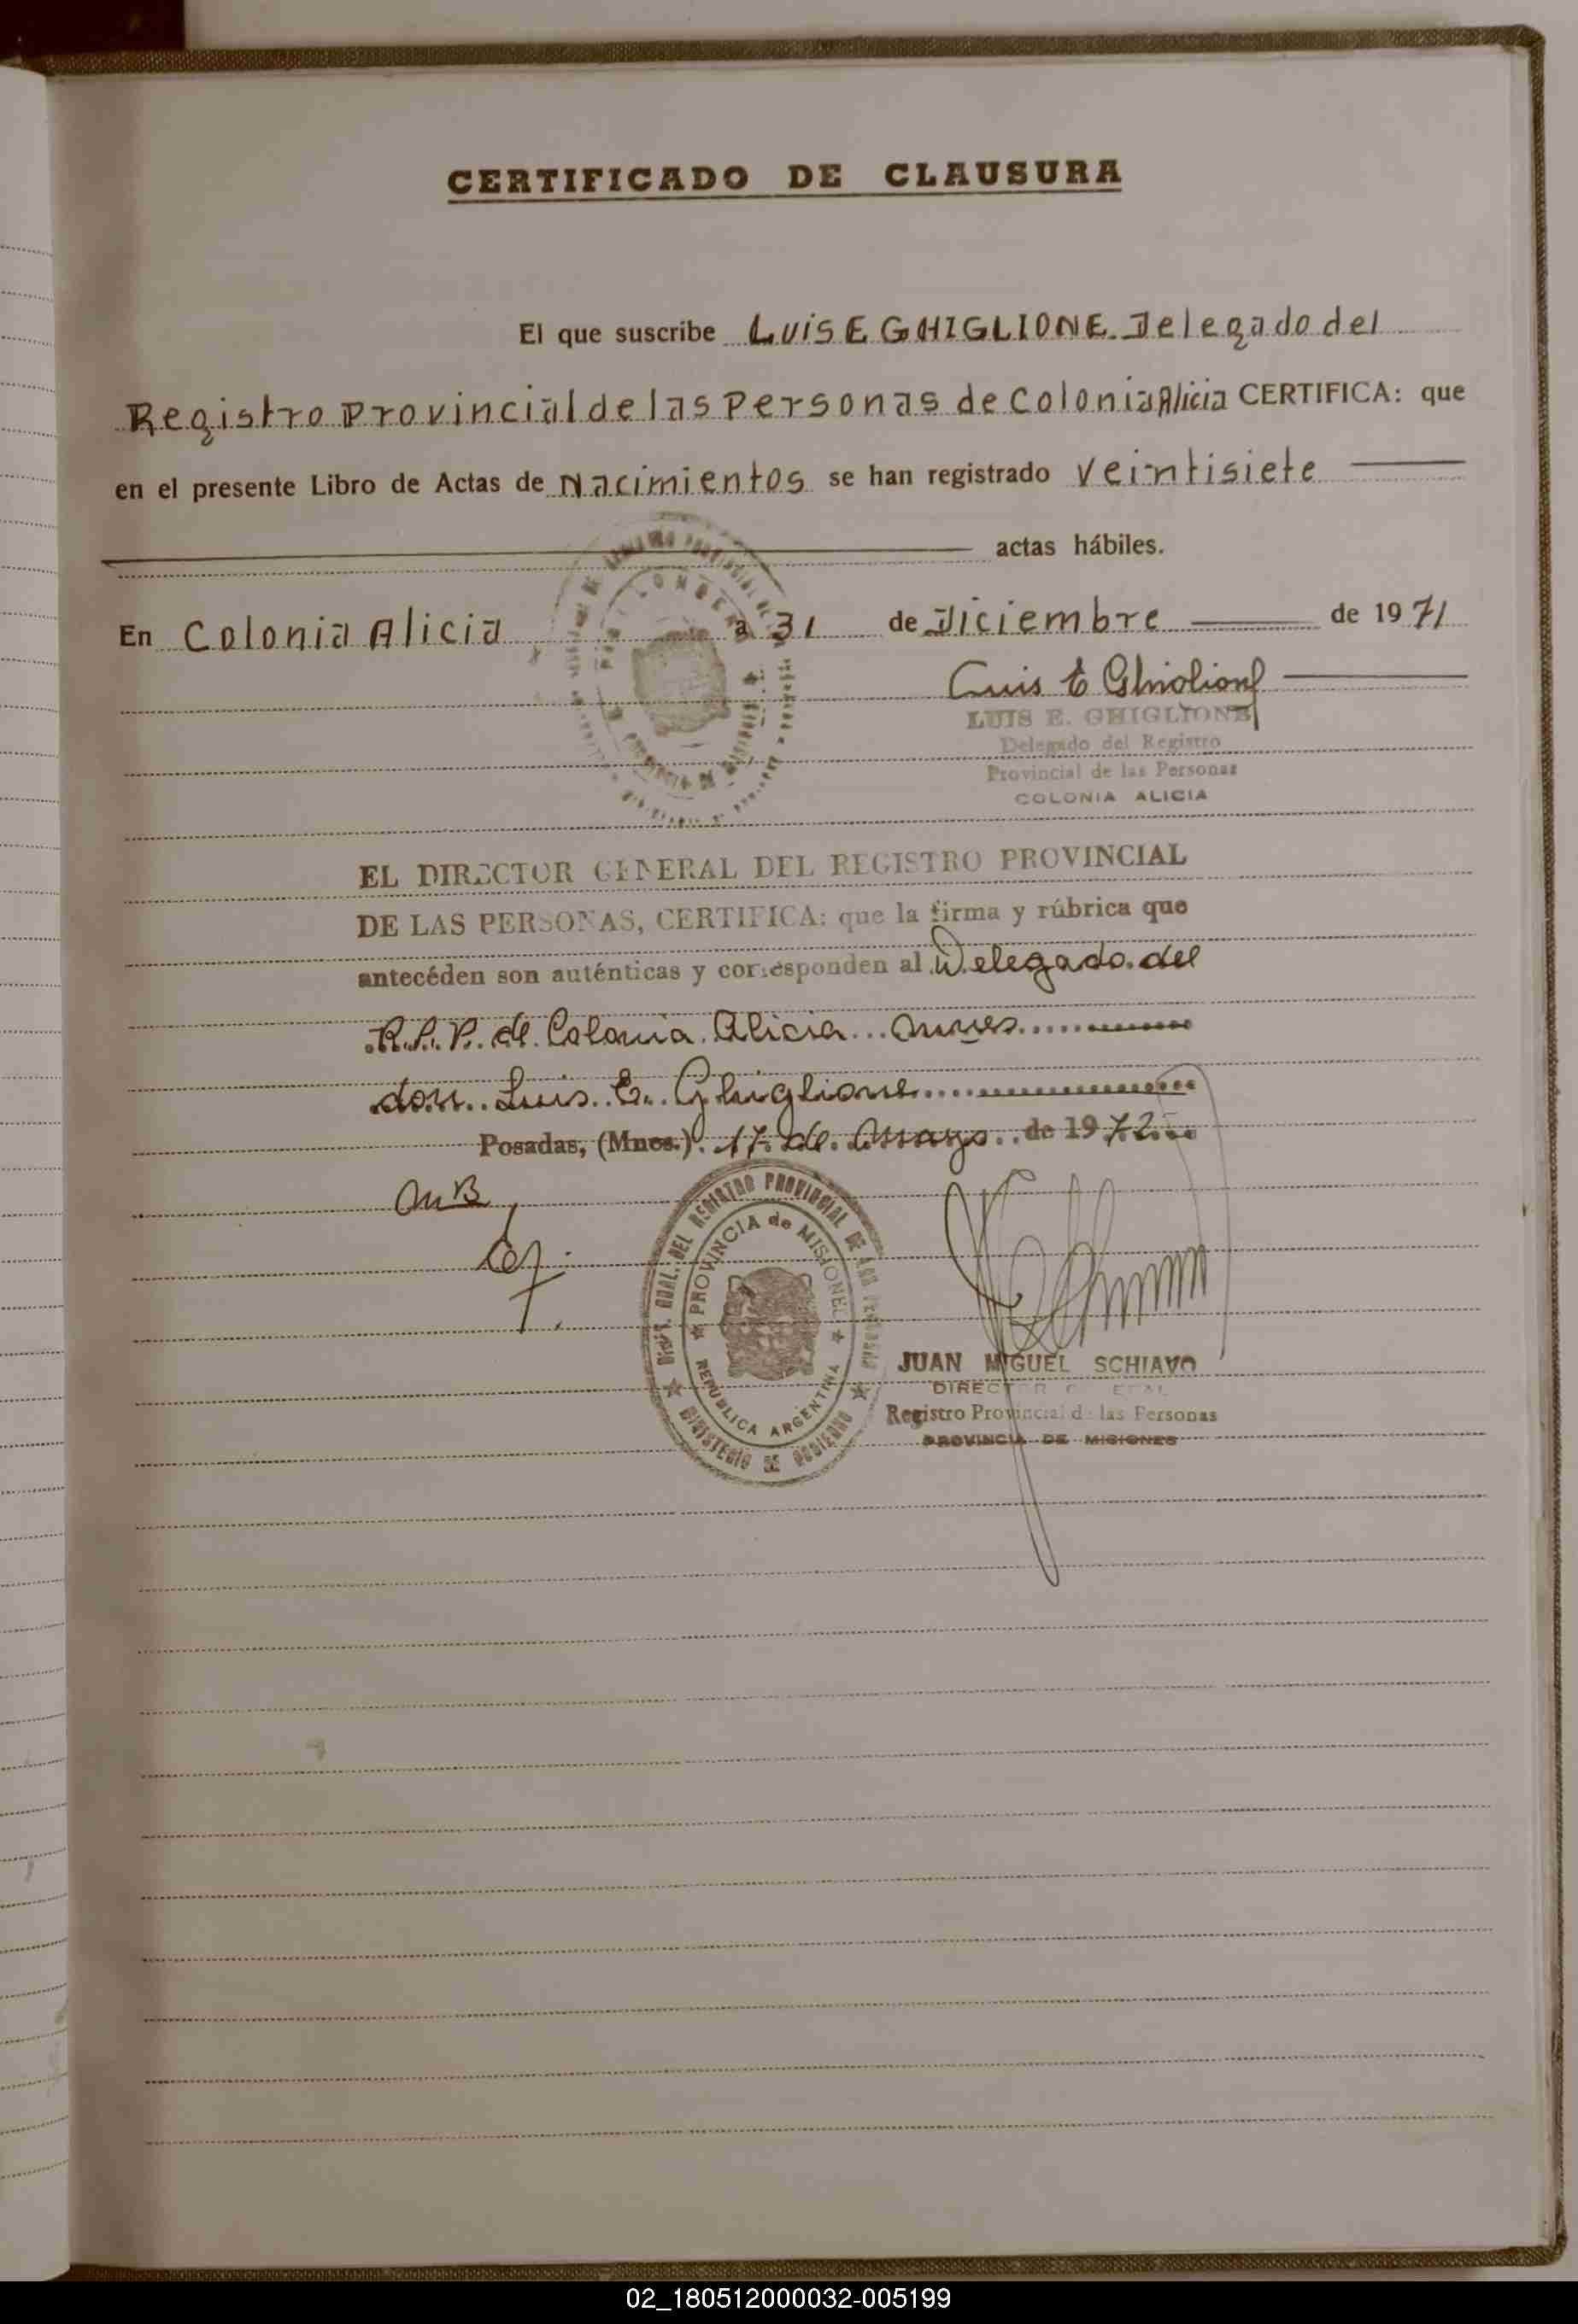 CERTIFICADO DE CLAUSURA
El que suscribe LUIS E GHIGLIONE Delegado del
Registro Provincial de las Personas de Colonia Alicia CERTIFICA: que
en el presente Libro de Actas de Nacimientos se han registrado veintisiete
actas hábiles.
En Colonia Alicia a 31 de Diciembre de 1971
Luis E Ghiglione
LUIS E. GHIGLIONE
Delegado del Registro
Provincial de las Personas
COLONIA ALICIA
EL DIRECTOR GENERAL DEL REGISTRO PROVINCIAL
DE LAS PERSONAS, CERTIFICA: que la firma y rúbrica que
antecéden son auténticas y corresponden al Delegado del
R.P.P. de Colonia Alicia Mnes
don Luis E. Ghiglione
Posadas, (Mnes.) 17 de Mayo de 1972
MB
DIR. GRAL. DEL REGISTRO PROVINCIAL DE LAS PERSONAS
PROVINCIA de MISIONES
REPÚBLICA ARGENTINA
MINISTERIO DE GOBIERNO
JUAN MIGUEL SCHIAVO
DIRECTOR GENERAL
Registro Provincial de las Personas
PROVINCIA DE MISIONES
02_180512000032-005199